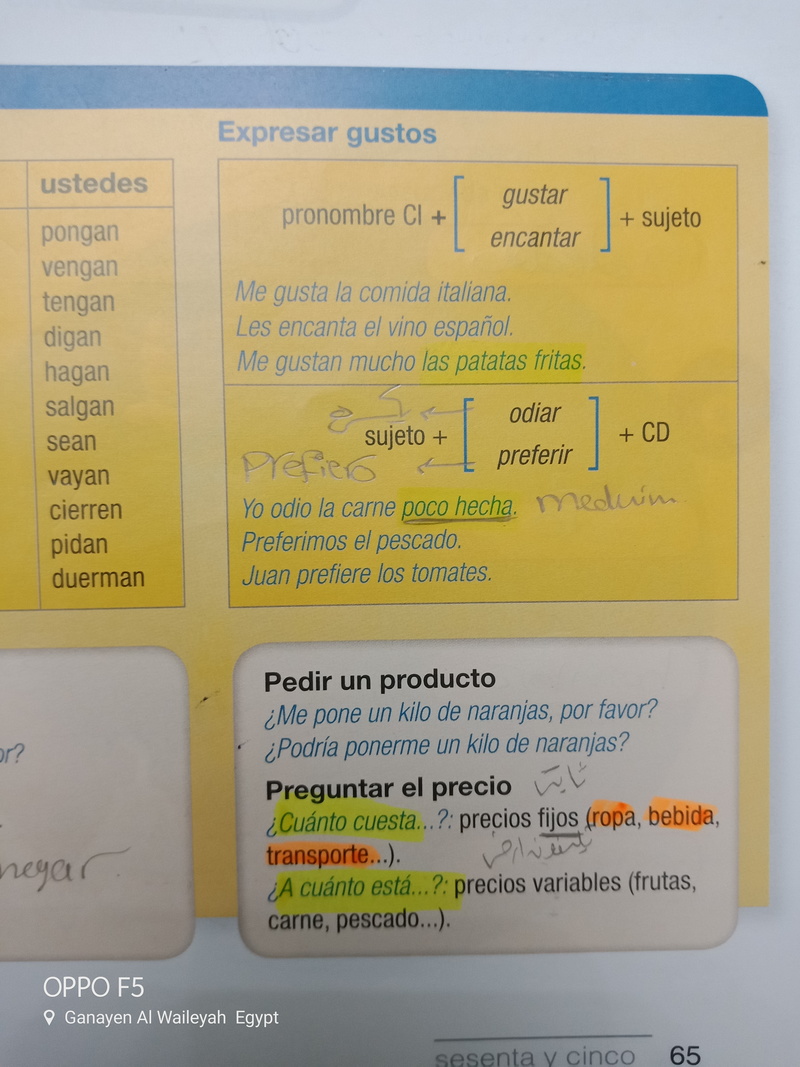 Expresar gustos
ustedes
pongan
vengan
tengan
digan
hagan
salgan
sean
vayan
cierren
pidan
duerman
pronombre CI + [ gustar encantar ] + sujeto
Me gusta la comida italiana.
Les encanta el vino español.
Me gustan mucho las patatas fritas.
sujeto + [ odiar preferir ] + CD
Prefiero
Yo odio la carne poco hecha.
Preferimos el pescado.
Juan prefiere los tomates.
or?
Pedir un producto
¿Me pone un kilo de naranjas, por favor?
¿Podría ponerme un kilo de naranjas?
Preguntar el precio
ثابت
¿Cuánto cuesta...?: precios fijos (ropa, bebida,
transporte...).
¿A cuánto está...?: precios variables (frutas,
carne, pescado...).
OPPO F5
Ganayen Al Waileyah Egypt
sesenta y cinco 65